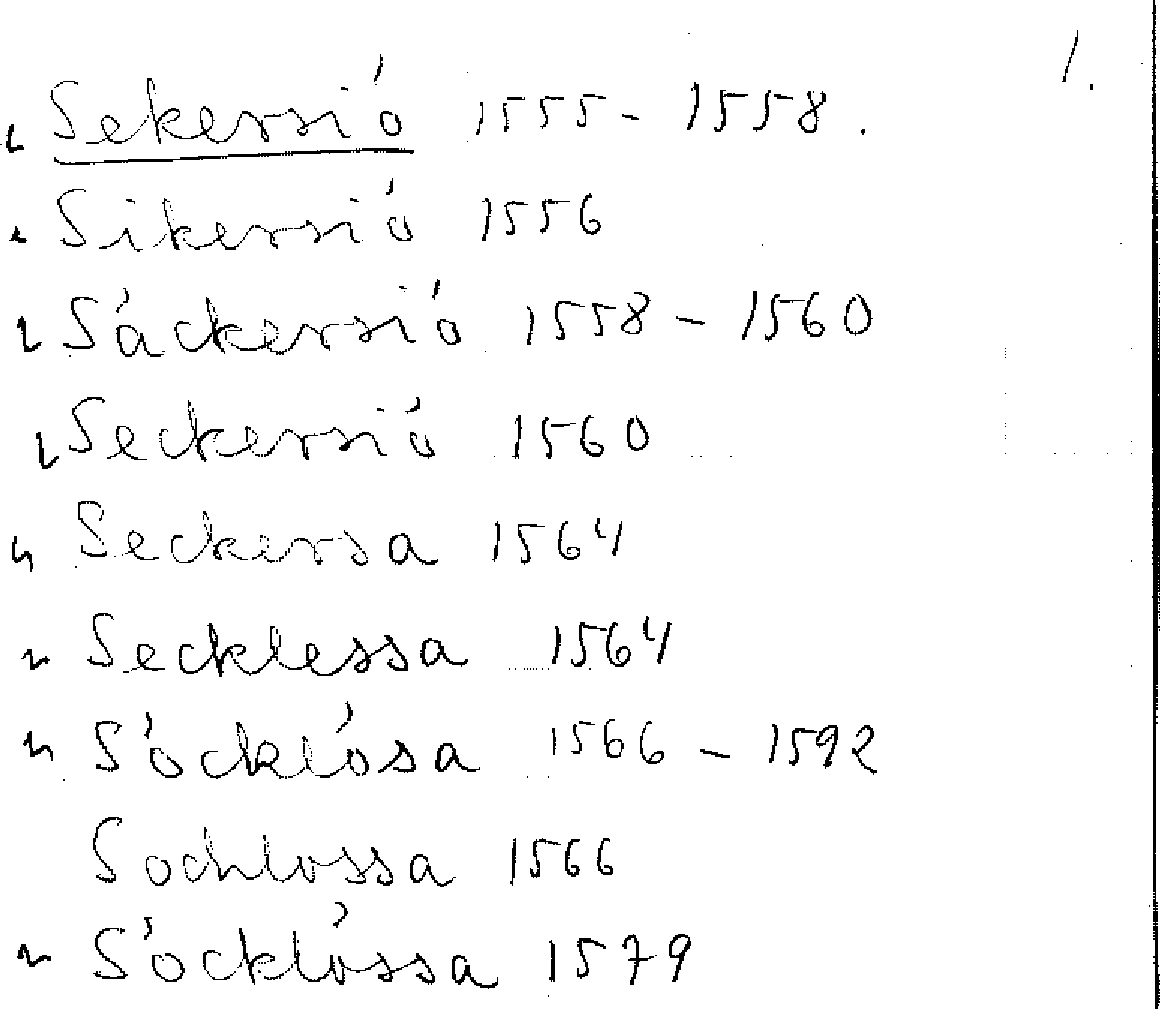 1.
Sekersiö 1555 - 1558.
Sikersiö 1556
Säckersiö 1558 - 1560
Seckersiö 1560
Seckersa 1564
Secklessa 1564
Söcklösa 1566 - 1592
Sochlossa 1566
Söcklössa 1579